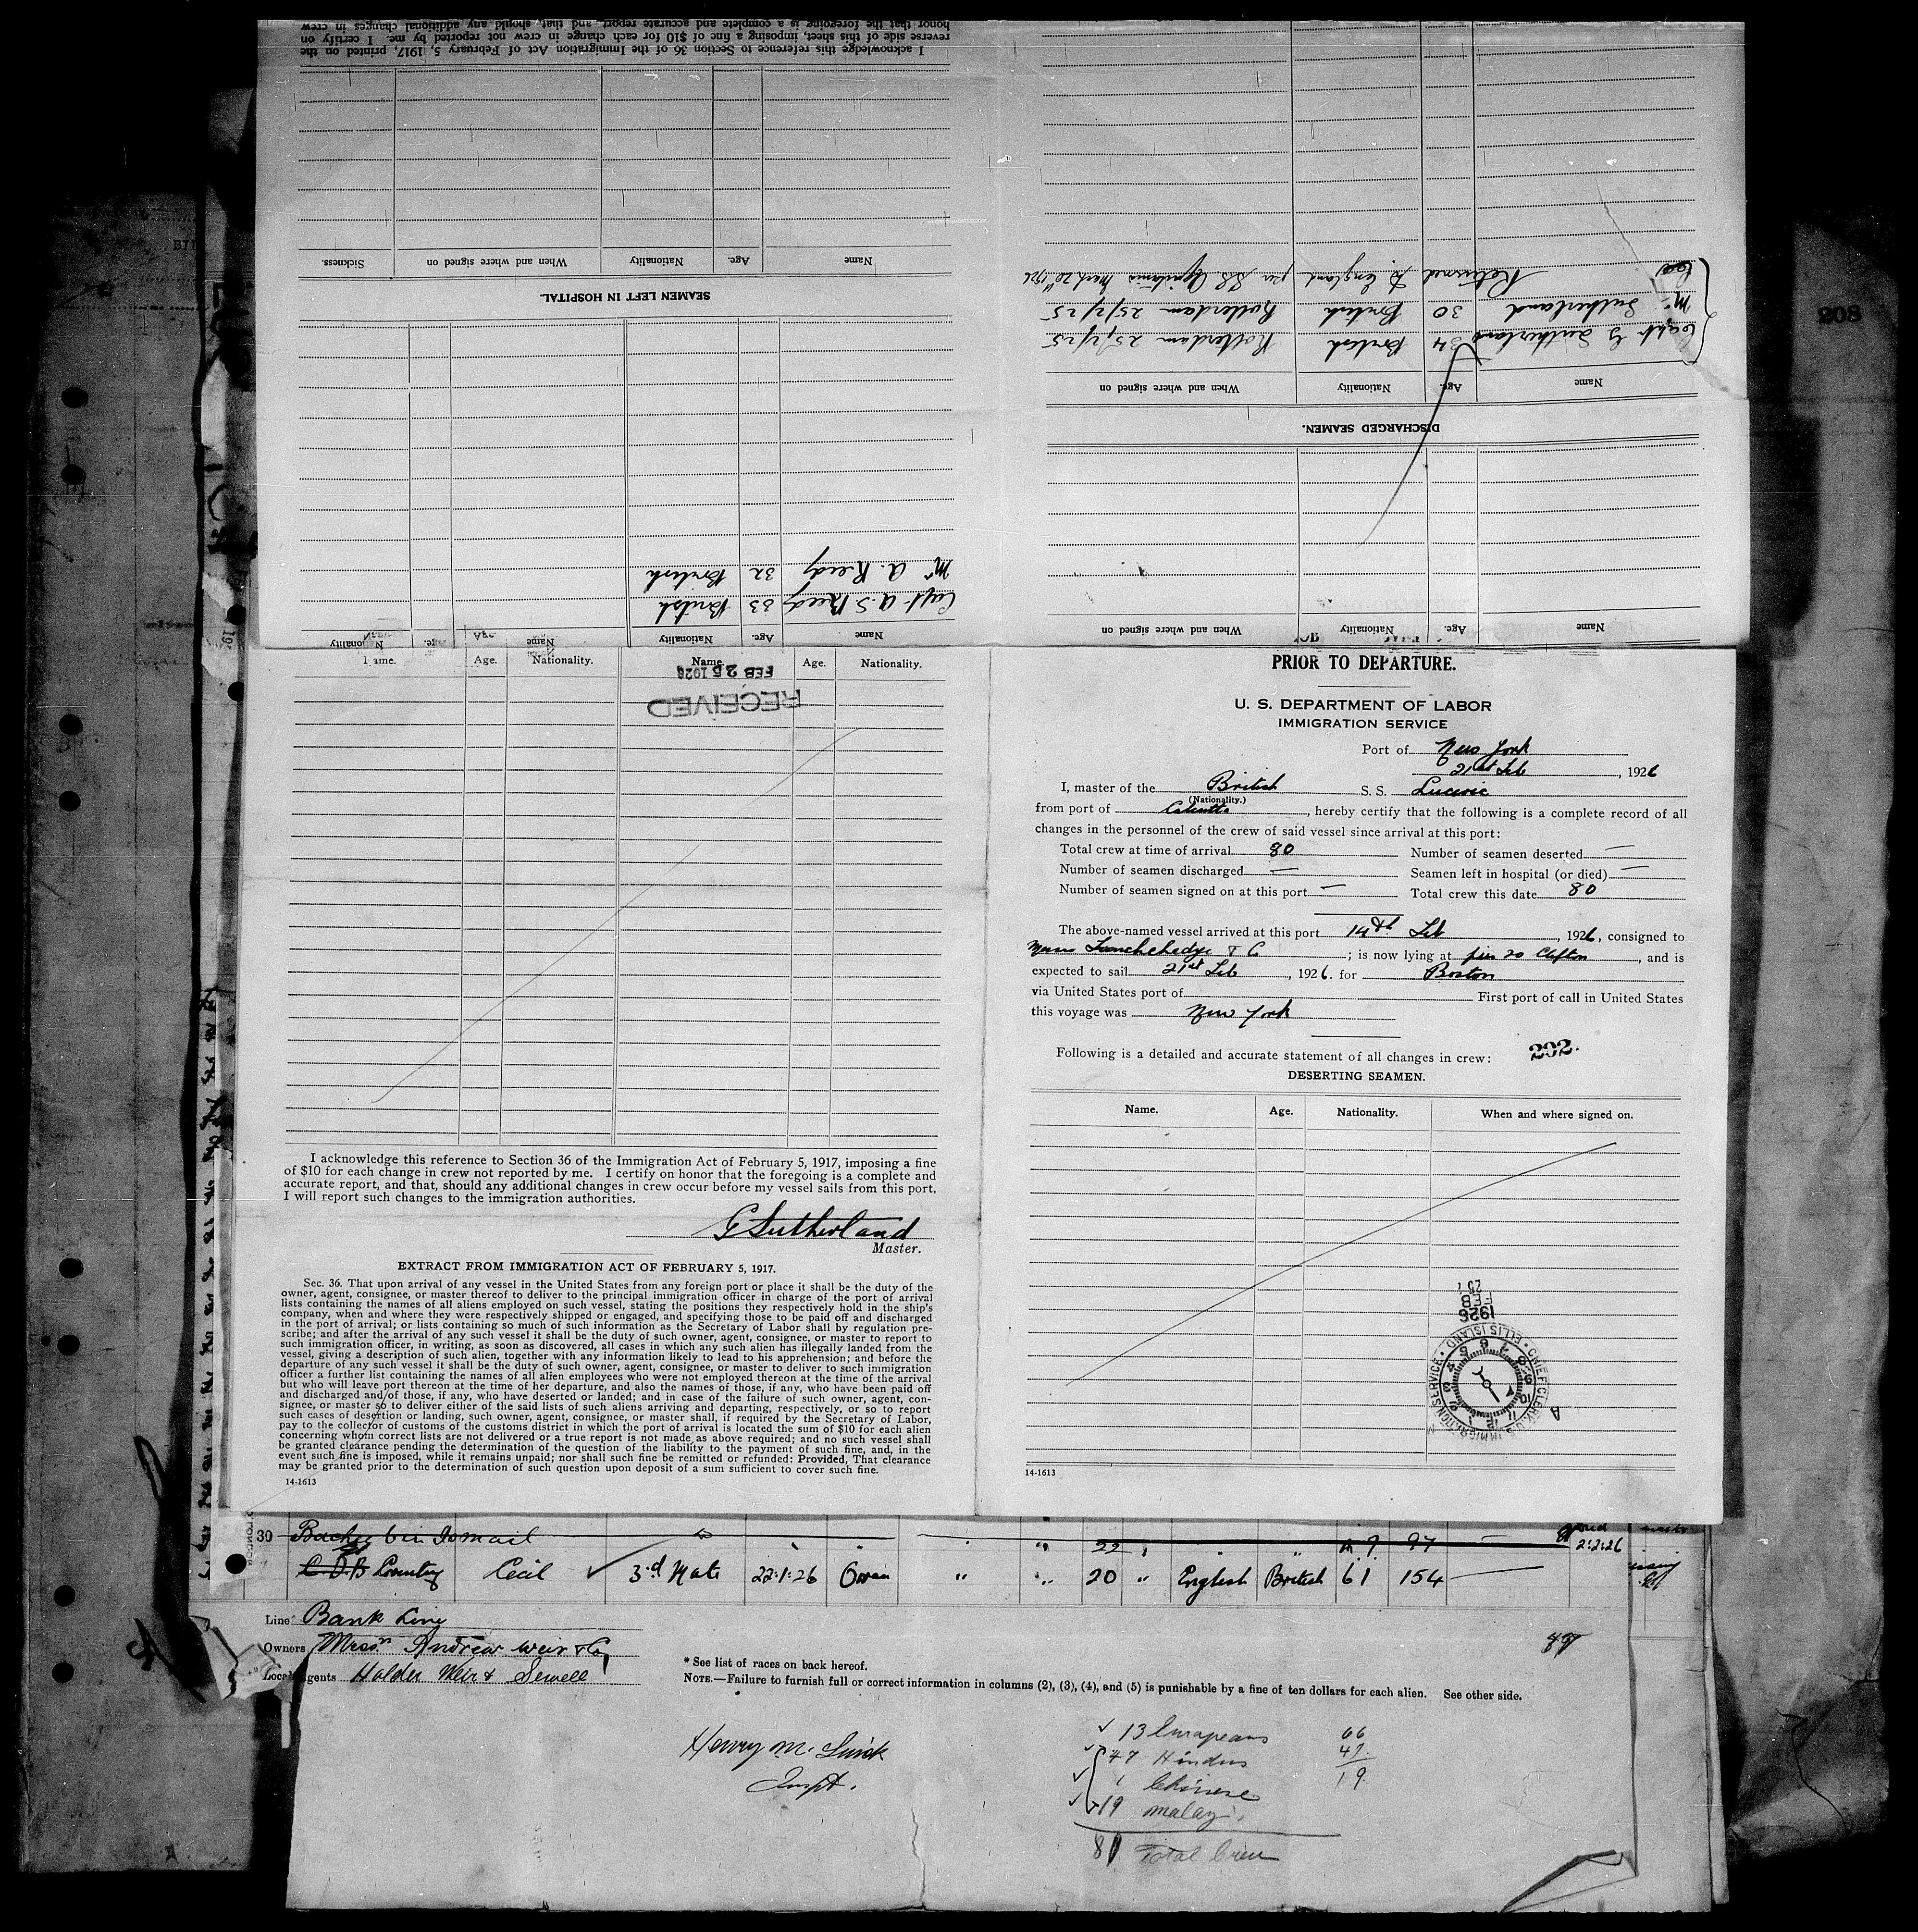 I acknowledge this reference to Section 36 of the Immigration Act of February 5, 1917, printed on the
reverse side of this sheet, imposing a fine of $10 for each change in crew not reported by me. I certify on
honor that the foregoing is a complete and accurate report, and that, should any additional changes in crew
Name Age. Nationality When and where signed on Sickness.
SEAMEN LEFT IN HOSPITAL.
Mr A. Reedy 32 British
Capt A.S Reedy 33 British
Name Age. Nationality Name Age. Nationality
Returned to England per SS
Mrs Sutherland 30 British Rotterdam 25/2/25
Capt G Sutherland 34 British Rotterdam 25/2/25
Name Age. Nationality When and where signed on
DISCHARGED SEAMEN.
Name Age. Nationality When and where signed on
208
Name. Age. Nationality. Name. Age. Nationality.
RECEIVED
FEB 25 1926
I acknowledge this reference to Section 36 of the Immigration Act of February 5, 1917, imposing a fine
of $10 for each change in crew not reported by me. I certify on honor that the foregoing is a complete and
accurate report, and that, should any additional changes in crew occur before my vessel sails from this port,
I will report such changes to the immigration authorities.
G Sutherland
Master.
EXTRACT FROM IMMIGRATION ACT OF FEBRUARY 5, 1917.
Sec. 36. That upon arrival of any vessel in the United States from any foreign port or place it shall be the duty of the
owner, agent, consignee, or master thereof to deliver to the principal immigration officer in charge of the port of arrival
lists containing the names of all aliens employed on such vessel, stating the positions they respectively hold in the ship's
company, when and where they were respectively shipped or engaged, and specifying those to be paid off and discharged
in the port of arrival; or lists containing so much of such information as the Secretary of Labor shall by regulation pre-
scribe; and after the arrival of any such vessel it shall be the duty of such owner, agent, consignee, or master to report to
such immigration officer, in writing, as soon as discovered, all cases in which any such alien has illegally landed from the
vessel, giving a description of such alien, together with any information likely to lead to his apprehension; and before the
departure of any such vessel it shall be the duty of such owner, agent, consignee, or master to deliver to such immigration
officer a further list containing the names of all alien employees who were not employed thereon at the time of the arrival
but who will leave port thereon at the time of her departure, and also the names of those, if any, who have been paid off
and discharged and/of those, if any, who have deserted or landed; and in case of the failure of such owner, agent, con-
signee, or master so to deliver either of the said lists of such aliens arriving and departing, respectively, or so to report
such cases of desertion or landing, such owner, agent, consignee, or master shall, if required by the Secretary of Labor,
pay to the collector of customs of the customs district in which the port of arrival is located the sum of $10 for each alien
concerning whom correct lists are not delivered or a true report is not made as above required; and no such vessel shall
be granted clearance pending the determination of the question of the liability to the payment of such fine, and, in the
event such fine is imposed, while it remains unpaid; nor shall such fine be remitted or refunded: Provided, That clearance
may be granted prior to the determination of such question upon deposit of a sum sufficient to cover such fine.
14-1613
PRIOR TO DEPARTURE.
U. S. DEPARTMENT OF LABOR
IMMIGRATION SERVICE
Port of New York
21st Feb, 1926
I, master of the British S. S. Luceric
(Nationality.)
from port of Calcutta, hereby certify that the following is a complete record of all
changes in the personnel of the crew of said vessel since arrival at this port:
Total crew at time of arrival 80 Number of seamen deserted —
Number of seamen discharged — Seamen left in hospital (or died) —
Number of seamen signed on at this port — Total crew this date 80
The above-named vessel arrived at this port 14th Feb, 1926, consigned to
; is now lying at pier 20 Clifton, and is
expected to sail 21st Feb, 1926. for Boston
via United States port of First port of call in United States
this voyage was New York
Following is a detailed and accurate statement of all changes in crew: 292.
DESERTING SEAMEN.
Name. Age. Nationality. When and where signed on.
1926
FEB
CHIEF CLERK U.S. IMMIGRATION SERVICE ELLIS ISLAND
14-1613
30 bin Ismail 22 97 2:2:26
C.D.B Coventry Cecil 3rd Mate 22:1:26 " " 20 " English British 61 154 —
Line Bank Line
Owners Messrs Andrew Weir & Co,
Local Agents Holder Weir & Sewell
* See list of races on back hereof.
NOTE.—Failure to furnish full or correct information in columns (2), (3), (4), and (5) is punishable by a fine of ten dollars for each alien. See other side.
13 Europeans 66
47 Hindus 47
1 Chinese 19
19 malay
81 Total Crew
Henry M.
Inspt.